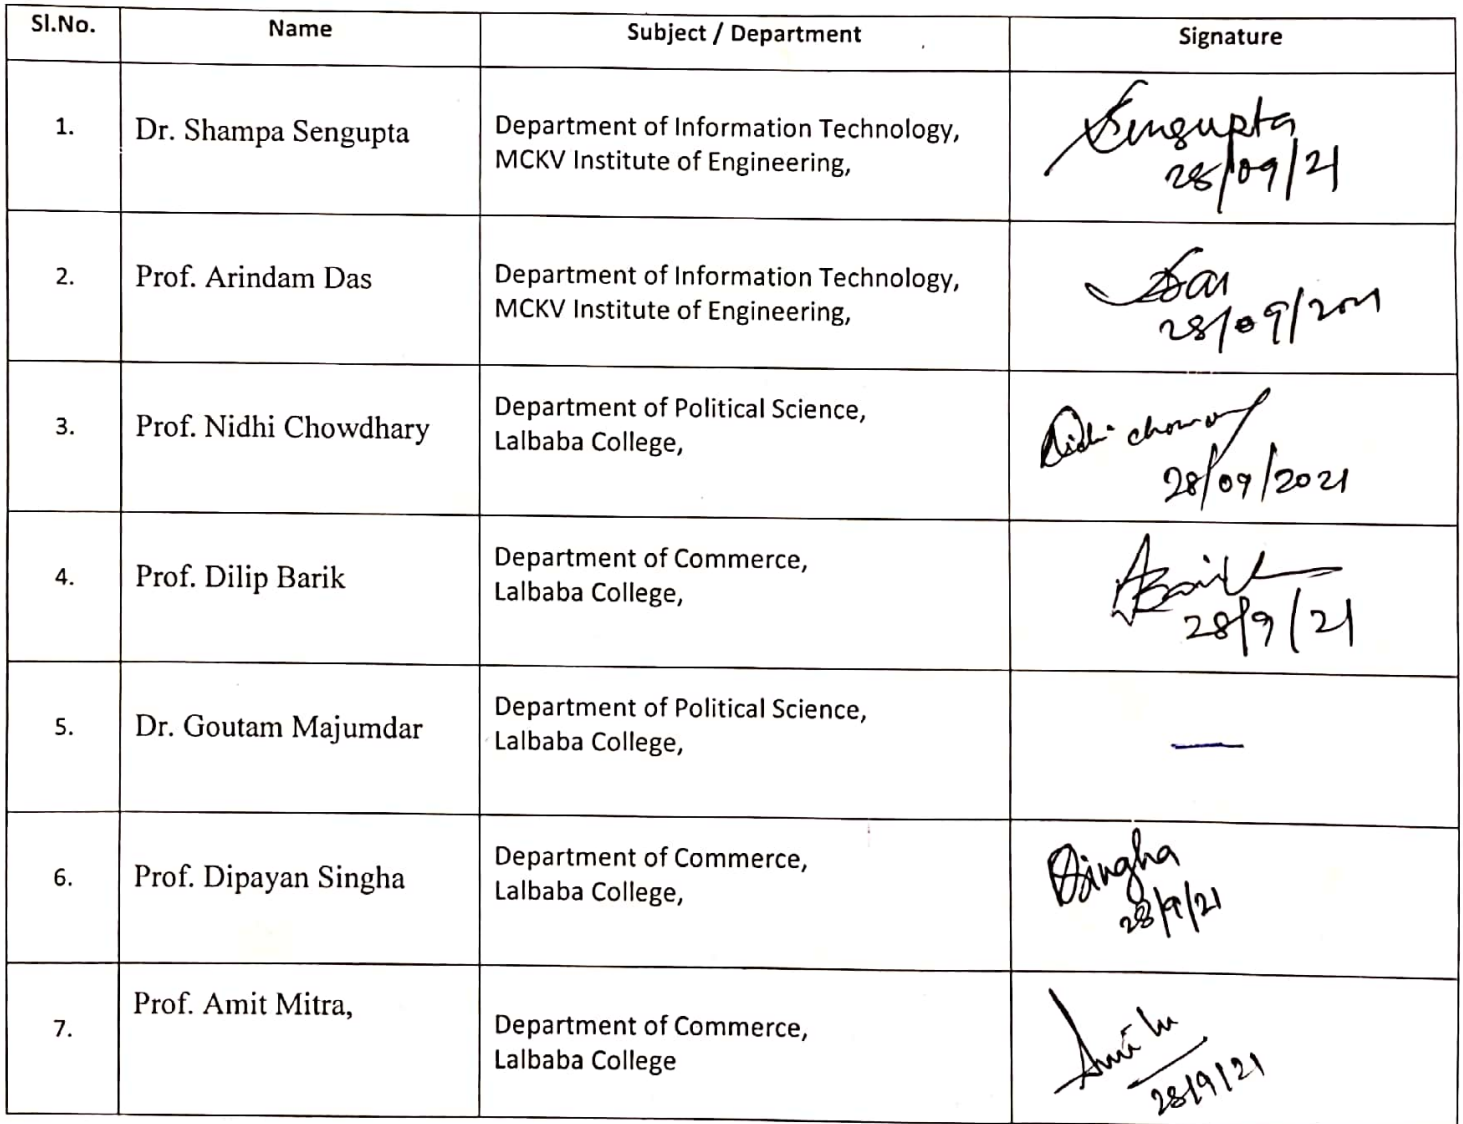 Sl.No. Name Subject / Department Signature
1. Dr. Shampa Sengupta Department of Information Technology,
MCKV Institute of Engineering,
Sengupta
28/09/21
2. Prof. Arindam Das Department of Information Technology,
MCKV Institute of Engineering,
Das
28/09/2021
3. Prof. Nidhi Chowdhary Department of Political Science,
Lalbaba College,
Nidhi
28/09/2021
4. Prof. Dilip Barik Department of Commerce,
Lalbaba College,
Barik
28/9/21
5. Dr. Goutam Majumdar Department of Political Science,
Lalbaba College,
—
6. Prof. Dipayan Singha Department of Commerce,
Lalbaba College,
Singha
28/9/21
7. Prof. Amit Mitra,
Department of Commerce,
Lalbaba College
28/9/21